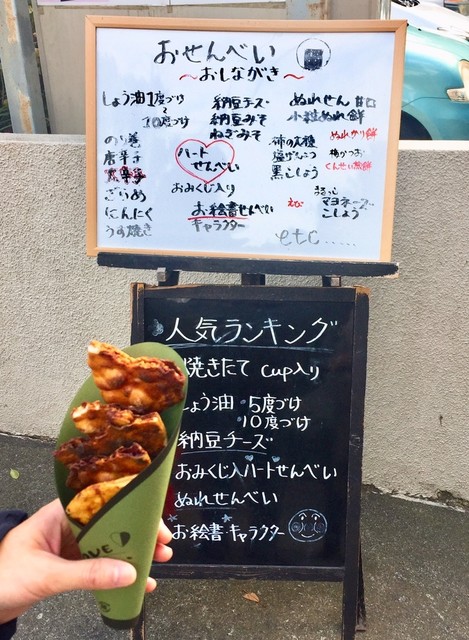 おせんべい
〜おしながき〜
しょう油1度づけ
10度づけ
のり巻
唐辛子
ざらめ
にんにく
うす焼き
納豆チーズ
納豆みそ
ねぎみそ
ハート
せんべい
おみくじ入り
お絵書せんべい
キャラクター
ぬれせん 甘口
小粒ぬれ餅
柿の種
塩こしょう
黒こしょう
えび
ぬれカリ餅
梅かつお
マヨネーズ
こしょう
etc.....
人気ランキング
焼きたて cup入り
しょう油 5度づけ
10度づけ
納豆チーズ
おみくじ入ハートせんべい
ぬれせんべい
お絵書・キャラクター